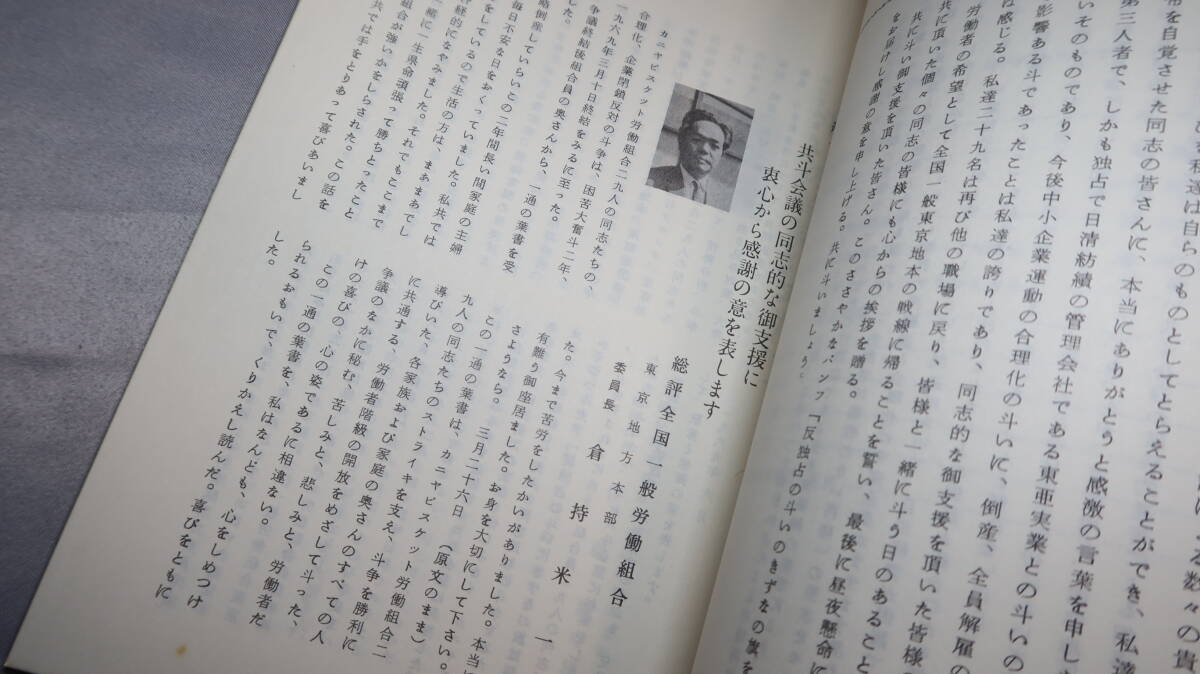 帯を自覚させた同志の皆さんに、本当にありがとうと感激の言葉を申し
第三人者で、しかも独占で日清紡績の管理会社である東亜実業との斗いの
いそのものであり、今後中小企業運動の合理化の斗いに、倒産、全員解雇の
影響ある斗であったことは私達の誇りであり、同志的な御支援を頂いた皆様
は感じる。私達二十九名は再び他の職場に戻り、皆様と一緒に斗う日のあること
労働者の希望として全国一般東京地本の戦線に帰ることを誓い、最後に昼夜懸命に
共に頂いた個々の同志の皆様にも心からの挨拶を贈る。
共に斗い御支援を頂いた皆さん。このささやかなパンフ「反独占の斗い のきずなの旗を
をお届けし感謝の意を申し上げる。共に斗いましょう。
共斗会議の同志的な御支援に
衷心から感謝の意を表します
総評全国一般労働組合
東京地方本部
委員長 倉持米一
カニヤビスケット労働組合二九人の同志たちの、
合理化、企業閉鎖反対の斗争は、困苦大奮斗二年、
一九六九年三月十日終結をみるに至った。
争議終結後組合員の奥さんから、一通の葉書を受
した。
略倒産していらいこの二年間長い間家庭の主婦
毎日不安な日をおくっていました。私共では
をしているので生活の方は、まあまあでし
経的になやみました。それでもここまで
一緒に一生県命頑張って勝ちとったこと
組合が強いかをしらされた。この話を
共では手をとりあって喜びあいまし
た。今まで苦労をしたかいがありました。本当
有難う御座居ました。お身を大切にして下さい。
さようなら。 三月二十六日 (原文のまま)
この一通の葉書は、カニヤビスケット労働組合二
九人の同志たちのストライキを支え、斗争を勝利に
導びいた、各家族および家庭の奥さんのすべての人
に共通する、労働者階級の開放をめざして斗った、
争議のなかに秘む、苦しみと、悲しみと、労働者だ
けの喜びの、心の姿であるに相違ない。
この一通の葉書を、私はなんども、心をしめつけ
られるおもいで、くりかえし読んだ。喜びをともに
した。